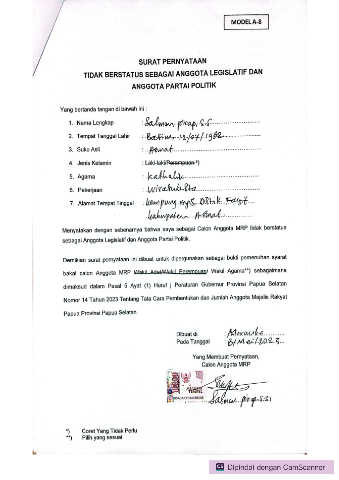 MODEL A-8
SURAT PERNYATAAN
TIDAK BERSTATUS SEBAGAI ANGGOTA LEGISLATIF DAN
ANGGOTA PARTAI POLITIK
Yang bertanda tangan di bawah ini :
1. Nama Lengkap : Salman
2. Tempat Tanggal Lahir :
3. Suku Asli :
4. Jenis Kelamin : Laki-laki/Perempuan *)
5. Agama : Katholik
6. Pekerjaan : Wiraswasta
7. Alamat Tempat Tinggal : kampung
kabupaten
Menyatakan dengan sebenarnya bahwa saya sebagai Calon Anggota MRP tidak berstatus
sebagai Anggota Legislatif dan Anggota Partai Politik.
Demikian surat pernyataan ini dibuat untuk dipergunakan sebagai bukti pemenuhan syarat
bakal calon Anggota MRP Wakil Adat/Wakil Perempuan/ Wakil Agama**) sebagaimana
dimaksud dalam Pasal 5 Ayat (1) Huruf j Peraturan Gubernur Provinsi Papua Selatan
Nomor 14 Tahun 2023 Tentang Tata Cara Pembentukan dan Jumlah Anggota Majelis Rakyat
Papua Provinsi Papua Selatan.
Dibuat di Merauke
Pada Tanggal Mei 2023
Yang Membuat Pernyataan,
Calon Anggota MRP
Salman
*) Coret Yang Tidak Perlu
**) Pilih yang sesuai
CS Dipindai dengan CamScanner